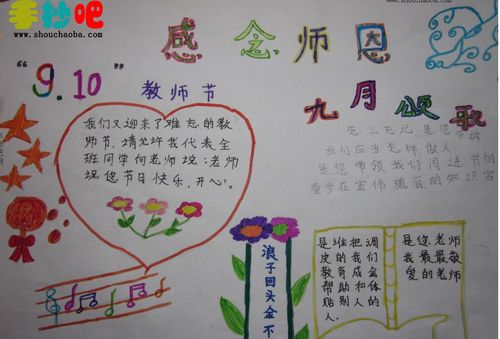 手抄吧
www.shouchaoba.com
感念师恩
"9.10"
教师节
九月颂歌
我们又迎来了难忘的教
师节,请允许我代表全
班同学向老师说:老师
祝您节日快乐,开心。
我们应当怎样做人
是您带领我们
浪子回头金不
是谁把调
皮的我们
教育成会
帮助和体
贴别人的
人.
是您老师
我最最敬
爱的老师